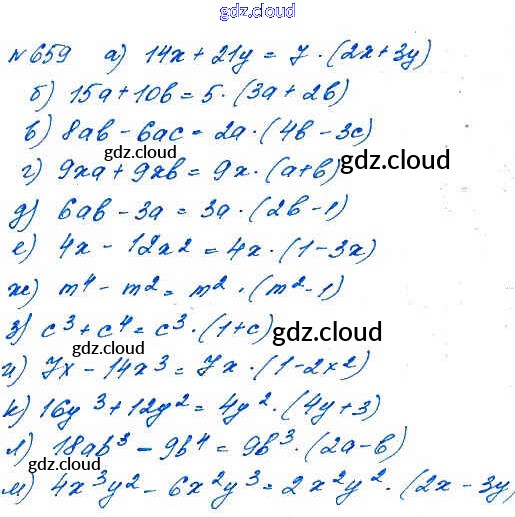 gdz.cloud
gdz.cloud
№659 а) 14x + 21y = 7 · (2x + 3y)
б) 15a + 10b = 5 · (3a + 2b)
в) 8ab - 6ac = 2a · (4b - 3c)
gdz.cloud
gdz.cloud
г) 9xa + 9xb = 9x · (a + b)
д) 6ab - 3a = 3a · (2b - 1)
е) 4x - 12x2 = 4x · (1 - 3x)
ж) m⁴ - m² = m² · (m² - 1)
з) c³ + c⁴ = c³ · (1 + c)
gdz.cloud
gdz.cloud
и) 7x - 14x³ = 7x · (1 - 2x²)
к) 16y³ + 12y² = 4y² · (4y + 3)
л) 18ab³ - 9b⁴ = 9b³ · (2a - b)
gdz.cloud
gdz.cloud
м) 4x³y² - 6x²y³ = 2x²y² · (2x - 3y)